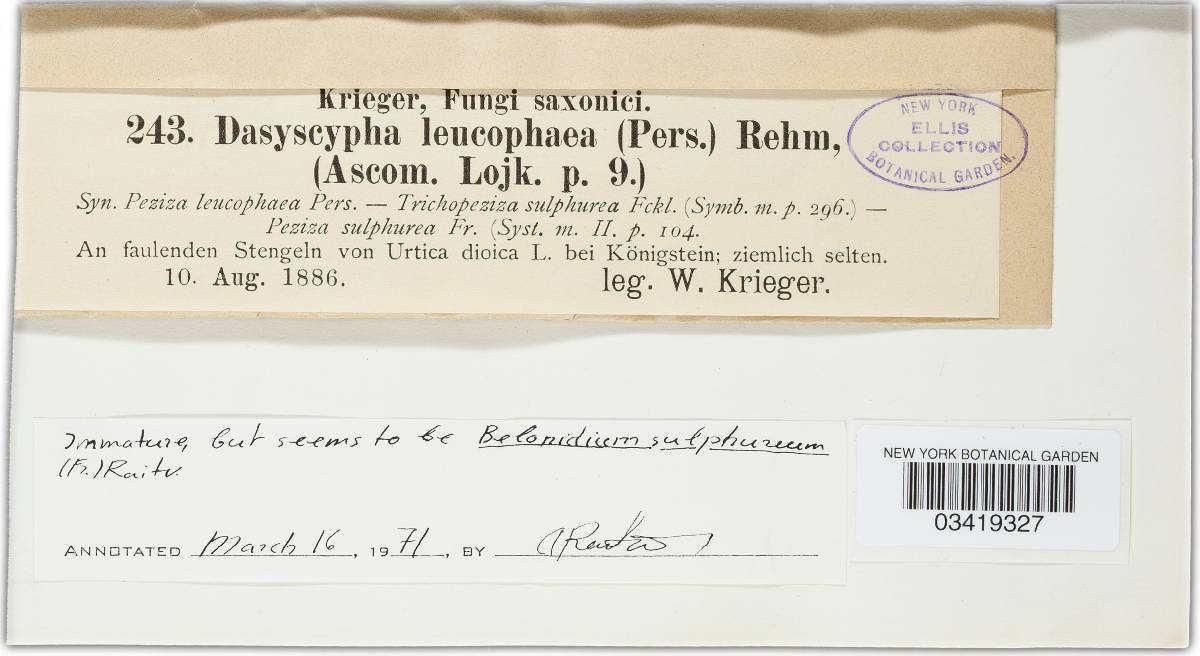 Krieger, Fungi saxonici.
243. Dasyscypha leucophaea (Pers.) Rehm,
(Ascom. Lojk. p. 9.)
Syn. Peziza leucophaea Pers. — Trichopeziza sulphurea Fckl. (Symb. m. p. 296.) —
Peziza sulphurea Fr. (Syst. m. II. p. 104.
An faulenden Stengeln von Urtica dioica L. bei Königstein; ziemlich selten.
10. Aug. 1886. leg. W. Krieger.
NEW YORK
ELLIS
COLLECTION
BOTANICAL GARDEN.
Immature, but seems to be Belonidium sulphureum
(Fr.) Raitv.
ANNOTATED March 16, 1971, BY
NEW YORK BOTANICAL GARDEN
03419327